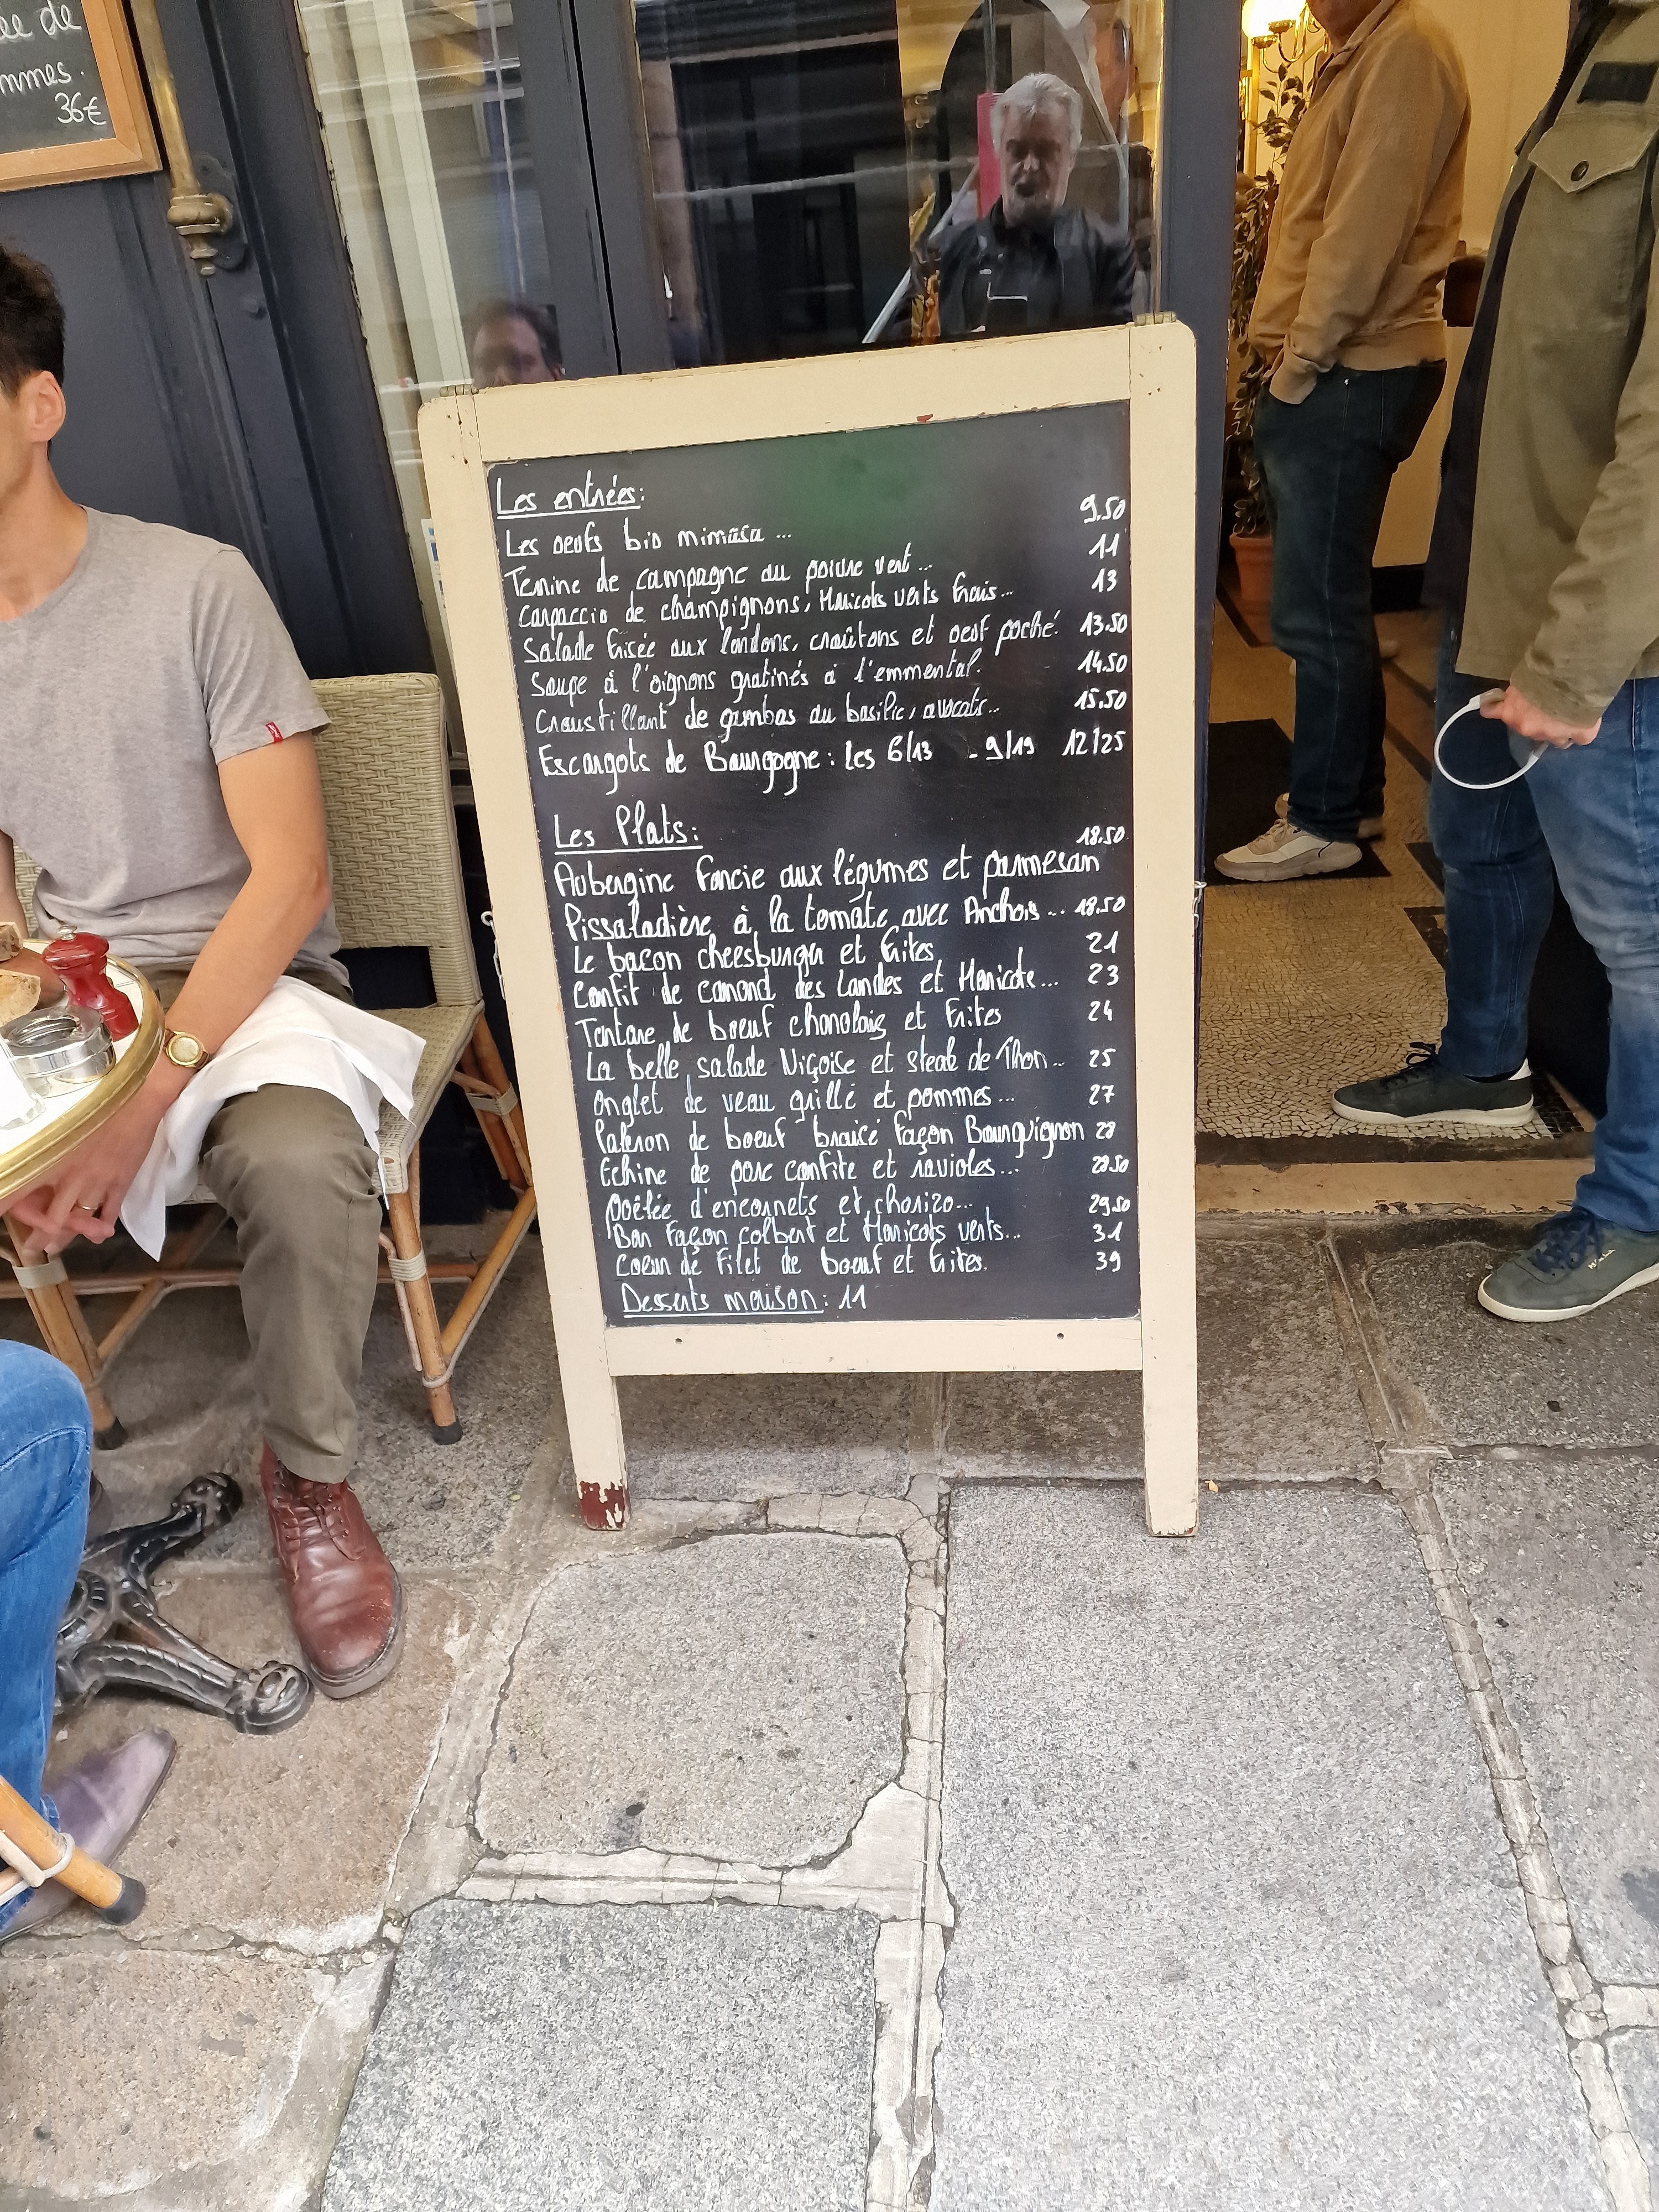 ée de
mmes.
36€
Les entrées:
Les oeufs bio mimosa ... 9.50
Terrine de campagne au poivre vert ... 11
Carpaccio de champignons, Haricots verts frais ... 13
Salade frisée aux lardons, croûtons et oeuf poché. 13.50
Soupe à l'oignons gratinés à l'emmental. 14.50
Croustillant de gambas au basilic, avocats ... 15.50
Escargots de Bourgogne : les 6/13 - 9/19 12/25
Les Plats:
Aubergine farcie aux légumes et parmesan 18.50
Pissaladière à la tomate avec Anchois ... 18.50
Le bacon cheesburger et frites 21
Confit de canard des Landes et Haricots ... 23
Tartare de boeuf charolais et frites 24
La belle salade Niçoise et steak de Thon ... 25
Onglet de veau grillé et pommes ... 27
Paleron de boeuf braisé façon Bourguignon 28
Echine de porc confite et ravioles ... 28.50
poêlée d'encornets et chorizo ... 29.50
Bar façon colbert et Haricots verts ... 31
Coeur de filet de boeuf et frites. 39
Desserts maison : 11